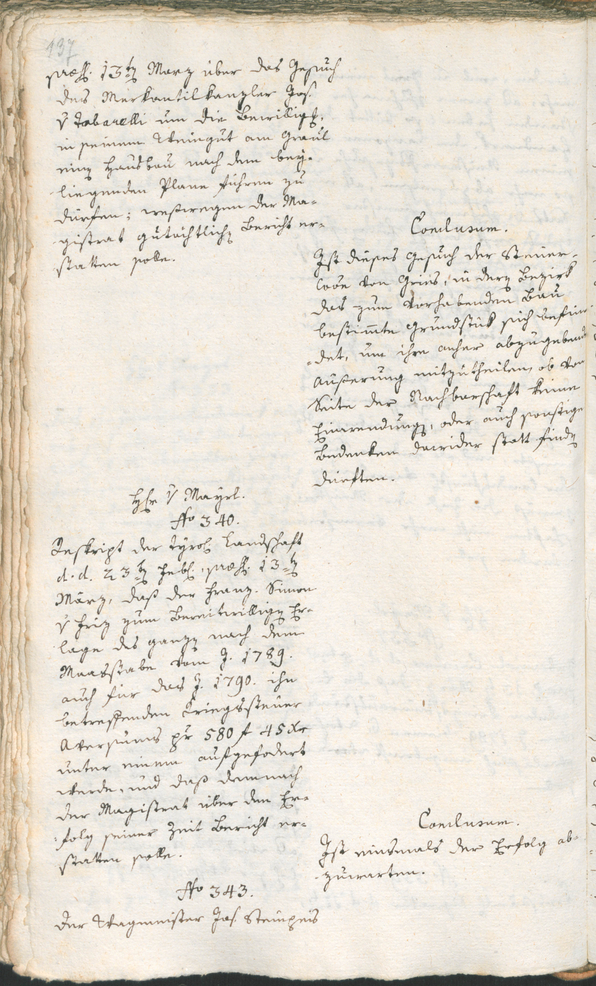 137
praes. 13ten März über das Gesuch
des Merkantilkanzler Jos.
v Tabarelli um die Bewilligg.
in seinem Weingut am Graul
einen Hausbau nach dem bey-
liegenden Plane führen zu
dürfen; weswegen der Ma-
gistrat gutächtlich Bericht er-
statten solle.
Conclusum.
Ist dieses Gesuch der Steuer-
von Gries, in deren Bezirk
das zum vorhabenden Bau
bestimmte Grundstük sich befin-
det, um ihre anher abzugebende
Äußerung mitzutheilen, ob von
Seite der Nachbarschaft keine
Einwendung, oder auch sonstige
Bedenken dawider statt finden
dürften.
Hr v Mayrl.
No 340.
Reskript der tyrol. Landschaft
d. d. 23ten Febr., praes. 13ten
März, daß der Franz. Simon
v zum bereitwilligen Er-
lage des ganzen nach dem
Maasstabe vom J. 1789.
auch für das J. 1790. ihn
betreffenden Kriegssteuer
Aversums pr 580 f 45 Xr
unter einem aufgefodert
werde, und daß demnach
der Magistrat über den Er-
folg seiner Zeit Bericht er-
statten solle.
Conclusum.
Ist einsmals der Erfolg ab-
zuwarten.
No 343.
Der Wagmeister Jos. Steinpeis